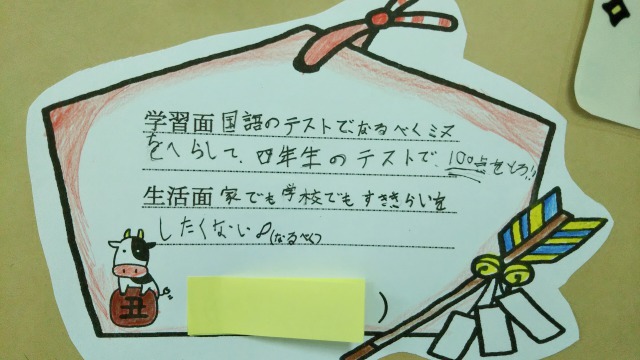 学習面 国語のテストで、なるべくミス
をへらして、四年生のテストで、100点をとる!!
生活面 家でも学校でもすききらいを
したくない。(なるべく)
丑
)